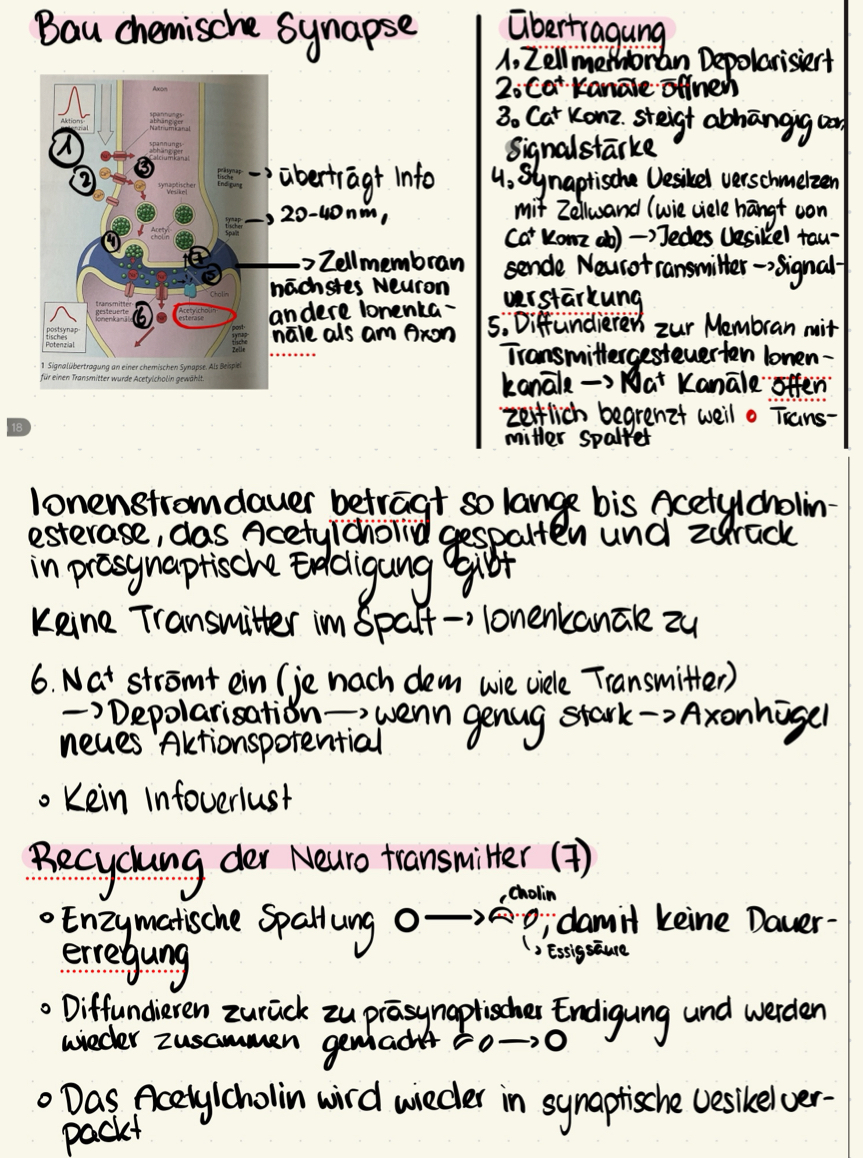 Bau chemische Synapse
Axon
Aktions-
potenzial
spannungs-
abhängiger
Natriumkanal
spannungs-
abhängiger
Calciumkanal
1
2
3
präsynap-
tische
Endigung
synaptischer
Vesikel
synap-
tischer
Spalt
Acetyl-
cholin
4
7
5
Cholin
transmitter-
gesteuerte
Ionenkanäle
6
Acetylcholin
esterase
postsynap-
tisches
Potenzial
post-
synap-
tische
Zelle
1 Signalübertragung an einer chemischen Synapse. Als Beispiel
für einen Transmitter wurde Acetylcholin gewählt.
-> überträgt Info
-> 20-40nm,
-> Zellmembran
nächstes Neuron
andere Ionenka-
näle als am Axon
18
Übertragung
1. Zellmembran Depolarisiert
2. Ca⁺ Kanäle öffnen
3. Ca⁺ Konz. steigt abhängig von
Signalstärke
4. Synaptische Vesikel verschmelzen
mit Zellwand (wie viele hängt von
Ca⁺ Konz ab) -> Jedes Vesikel tau-
sende Neurotransmitter -> Signal-
verstärkung
5. Diffundieren zur Membran mit
Transmittergesteuerten Ionen-
kanäle -> Na⁺ Kanäle offen
zeitlich begrenzt weil Trans-
mitter spaltet
Ionenstromdauer beträgt so lange bis Acetylcholin-
esterase, das Acetylcholin gespalten und zurück
in präsynaptische Endigung gibt
Keine Transmitter im Spalt -> Ionenkanäle zu
6. Na⁺ strömt ein (je nach dem wie viele Transmitter)
-> Depolarisation -> wenn genug stark -> Axonhügel
neues Aktionspotential
• Kein Infoverlust
Recyclung der Neurotransmitter (7)
Cholin
• Enzymatische Spaltung O -> , damit keine Dauer-
Essigsäure
erregung
• Diffundieren zurück zu präsynaptischer Endigung und werden
wieder zusammen gemacht -> O
• Das Acetylcholin wird wieder in synaptische Vesikel ver-
packt